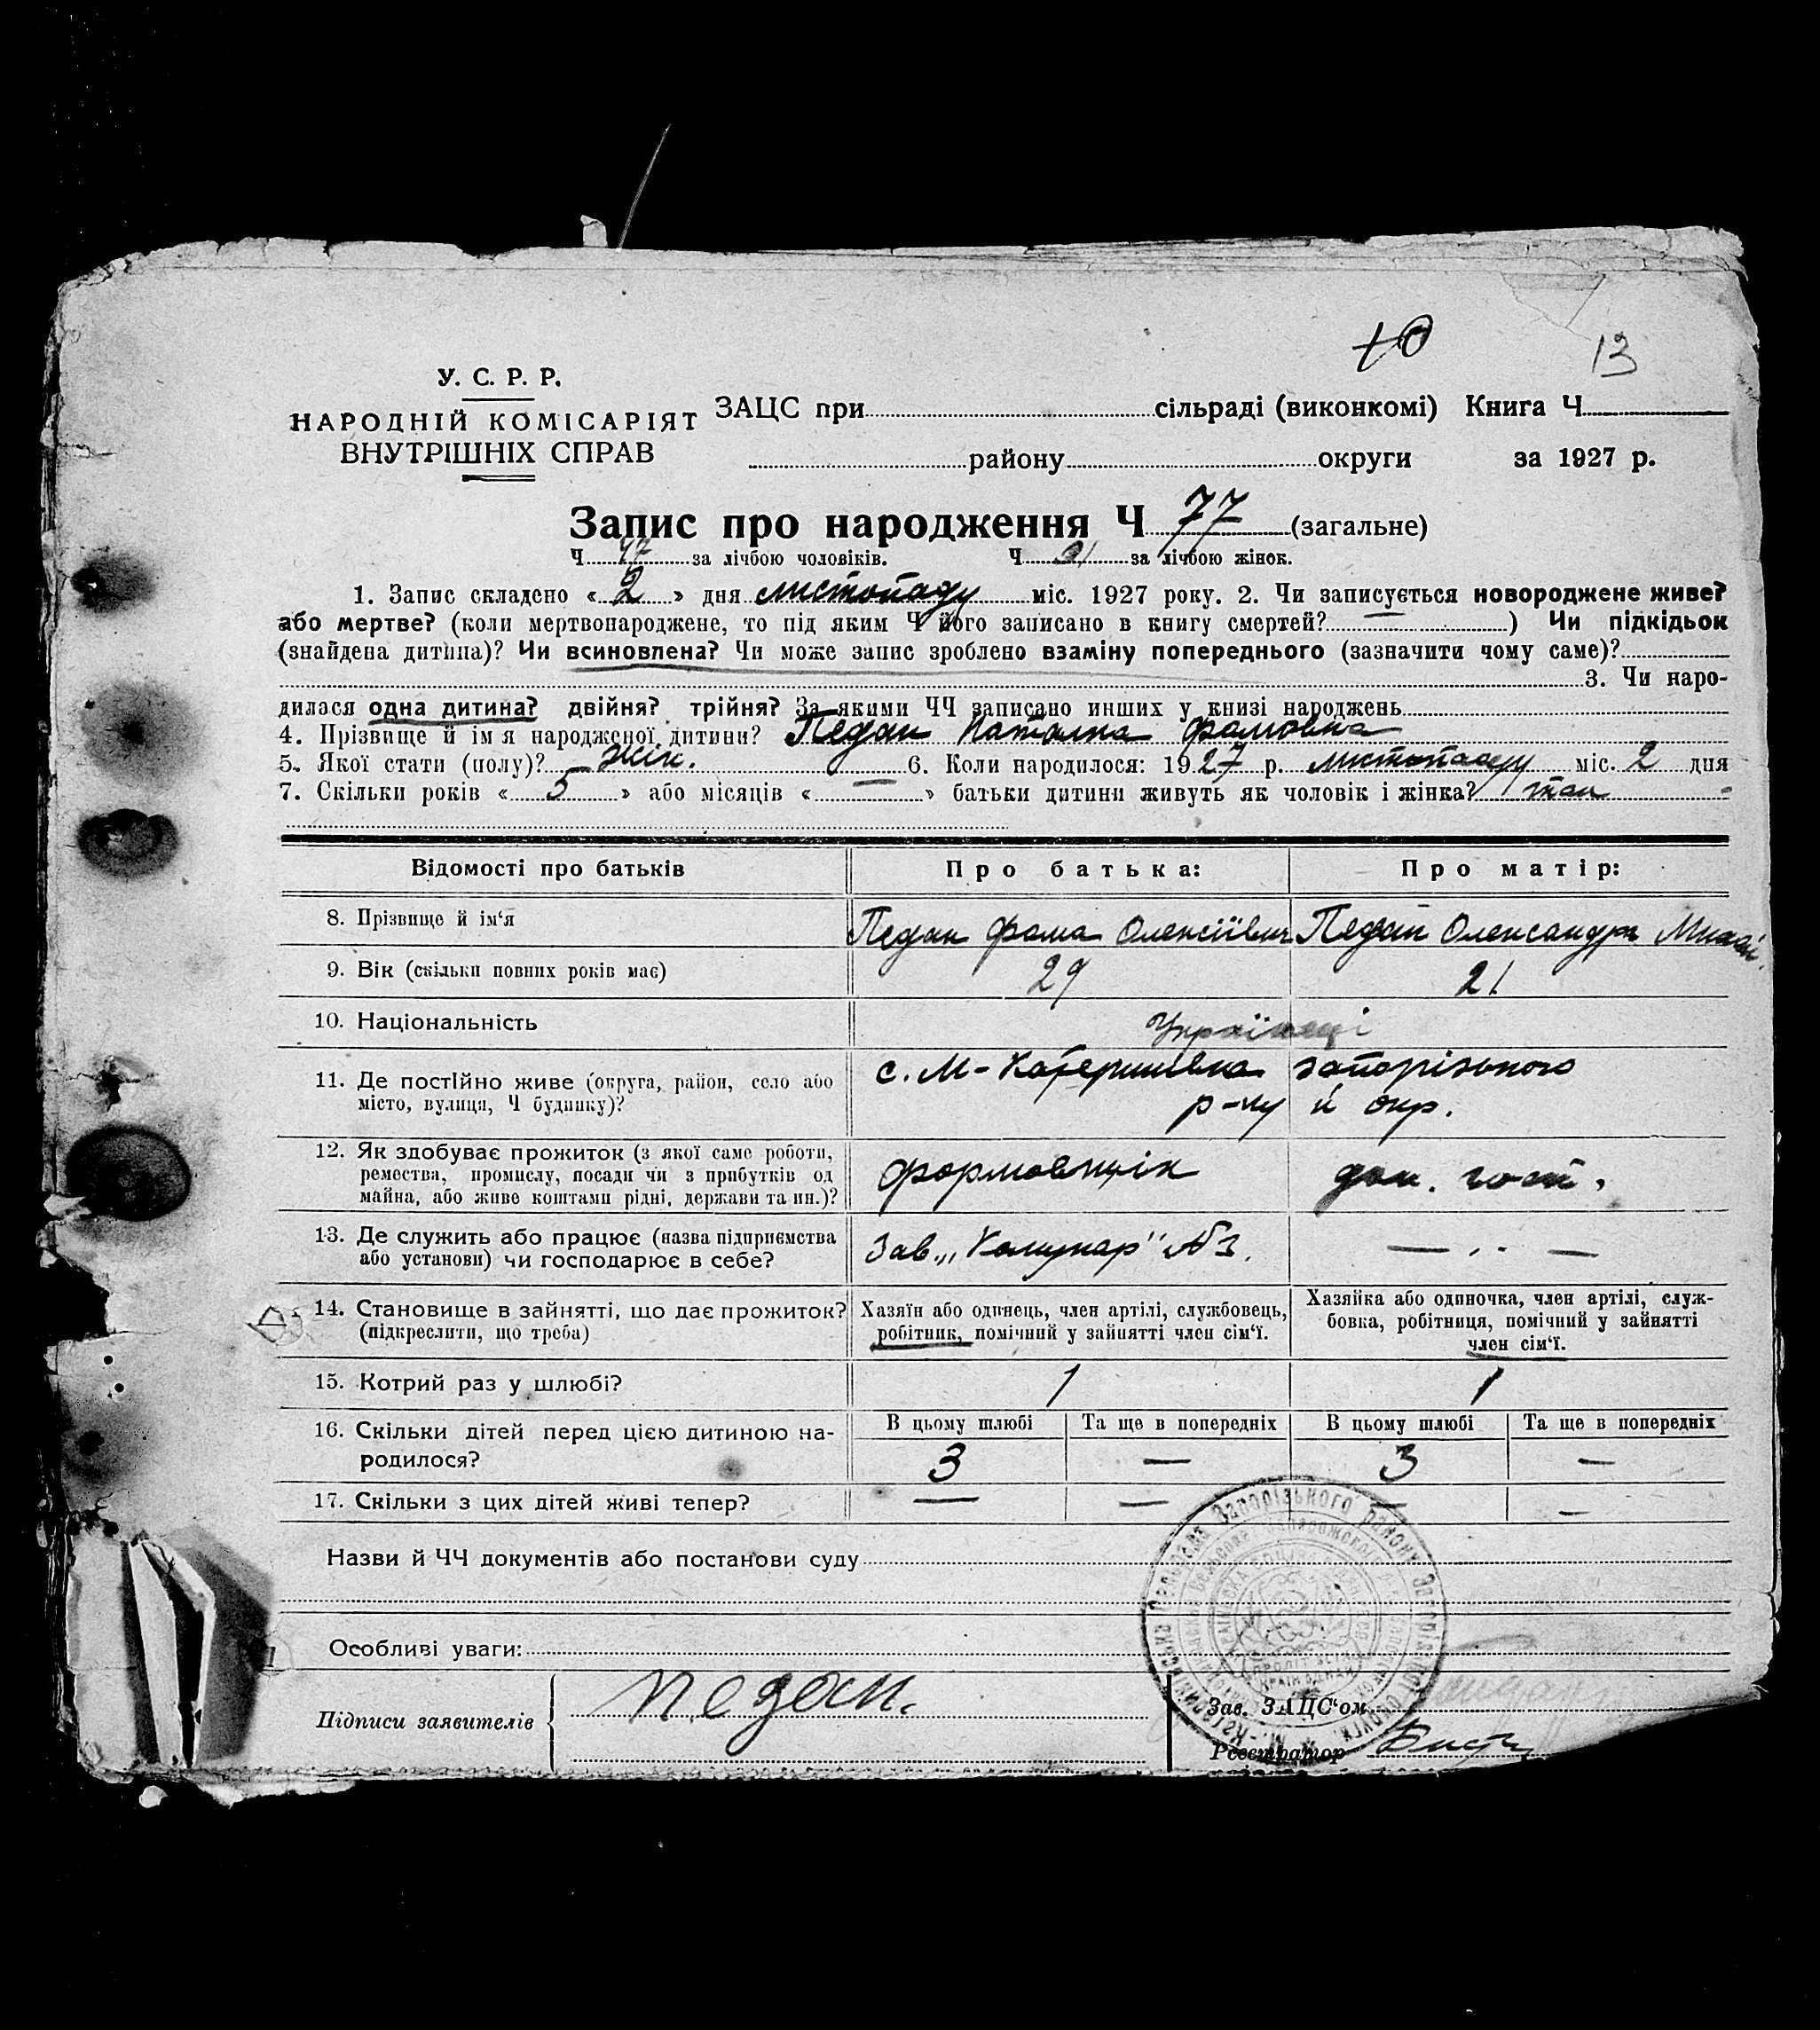 10
13
У. С. Р. Р.
НАРОДНІЙ КОМІСАРІЯТ
ВНУТРІШНІХ СПРАВ
ЗАЦС при сільраді (виконкомі) Книга Ч
району округи за 1927 р.
Запис про народження Ч 77 (загальне)
Ч за лічбою чоловіків. Ч за лічбою жінок.
1. Запис складено «2» дня листопаду міс. 1927 року. 2. Чи записується новороджене живе?
або мертве? (коли мертвонароджене, то під яким Ч його записано в книгу смертей? —) Чи підкідьок
(знайдена дитина)? Чи всиновлена? Чи може запис зроблено взаміну попереднього (зазначити чому саме)?
3. Чи наро-
дилася одна дитина? двійня? трійня? За якими ЧЧ записано инших у книзі народжень
4. Прізвище й ім'я народженої дитини? Педан Наталка Фомовна
5. Якої стати (полу)? жін. 6. Коли народилося: 1927 р. листопаду міс. 2 дня
7. Скільки років «5» або місяців «—» батьки дитини живуть як чоловік і жінка? так
Відомості про батьків Про батька: Про матір:
8. Прізвище й ім'я Педан Фома Олексіївич Педан Олександра
9. Вік (скільки повних років має) 29 21
10. Національність Українці
11. Де постійно живе (округа, район, село або
місто, вулиця, Ч будинку)?
с. М-Катеринівка запорізького
р-ну й окр.
12. Як здобуває прожиток (з якої саме роботи,
ремества, промислу, посади чи з прибутків од
майна, або живе коштами рідні, держави та ин.)?
формовщік дом. госп.
13. Де служить або працює (назва підприємства
або установи) чи господарює в себе?
Зав. „Комунар" — . . —
14. Становище в зайнятті, що дає прожиток?
(підкреслити, що треба)
Хазяїн або одинець, член артілі, службовець,
робітник, помічний у зайнятті член сім'ї.
Хазяйка або одиночка, член артілі, служ-
бовка, робітниця, помічний у зайнятті
член сім'ї.
15. Котрий раз у шлюбі? 1 1
16. Скільки дітей перед цією дитиною на-
родилося?
В цьому шлюбі Та ще в попередніх В цьому шлюбі Та ще в попередніх
3 — 3 —
17. Скільки з цих дітей живі тепер? — — — —
Назви й ЧЧ документів або постанови суду
Особливі уваги:
Підписи заявителів педан.
Зав. ЗАЦС'ом
Реєстратор
Запорізького району Запорізької округи